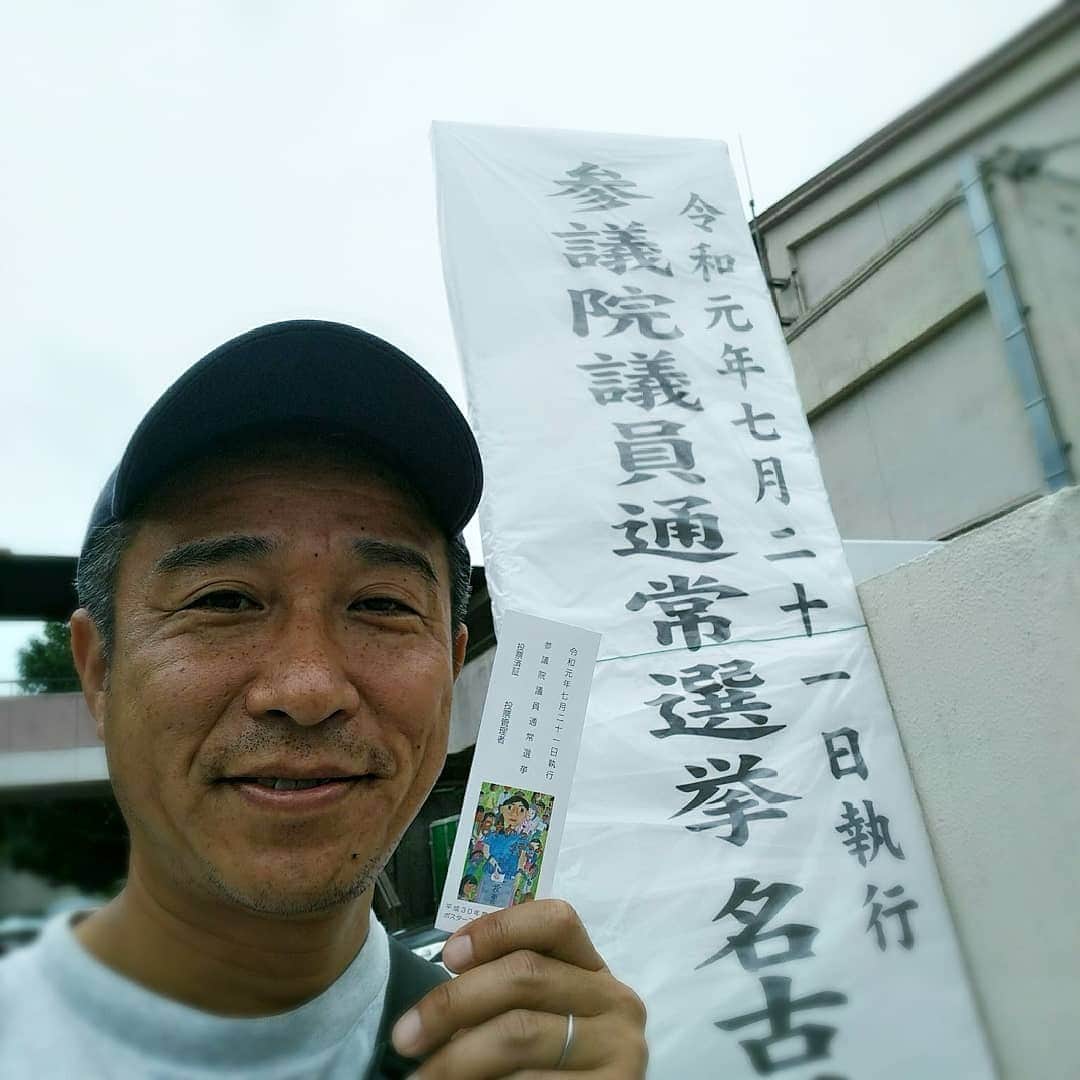 令和元年七月二十一日執行
参議院議員通常選挙 名古
令和元年七月二十一日執行
参議院議員通常選挙
投票済証 投票管理者
投票
平成30年
ポスター